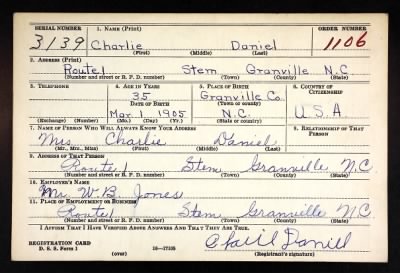 SERIAL NUMBER 1. NAME (Print) ORDER NUMBER
3139 Charlie Daniel 1106
(First) (Middle) (Last)
2. ADDRESS (Print)
Route 1 Stem Granville N.C
(Number and street or R. F. D. number) (Town) (County) (State)
3. TELEPHONE 4. AGE IN YEARS 5. PLACE OF BIRTH 6. COUNTRY OF CITIZENSHIP
35 Granville Co.
DATE OF BIRTH (Town or county)
Mar. 1 1905 N.C. U.S.A.
(Exchange) (No.) (Mo.) (Day) (Yr.) (State or country)
7. NAME OF PERSON WHO WILL ALWAYS KNOW YOUR ADDRESS 8. RELATIONSHIP OF THAT PERSON
Mrs Charlie Daniel
(Mr., Mrs., Miss) (First) (Middle) (Last)
9. ADDRESS OF THAT PERSON
Route 1 Stem Granville N.C.
(Number and street or R. F. D. number) (Town) (County) (State)
10. EMPLOYER'S NAME
Mr. W.B. Jones
11. PLACE OF EMPLOYMENT OR BUSINESS
Route 1 Stem Granville N.C.
(Number and street or R. F. D. number) (Town) (County) (State)
I AFFIRM THAT I HAVE VERIFIED ABOVE ANSWERS AND THAT THEY ARE TRUE.
REGISTRATION CARD
D. S. S. Form 1 16—17105 Daniel
(over) (Registrant's signature)